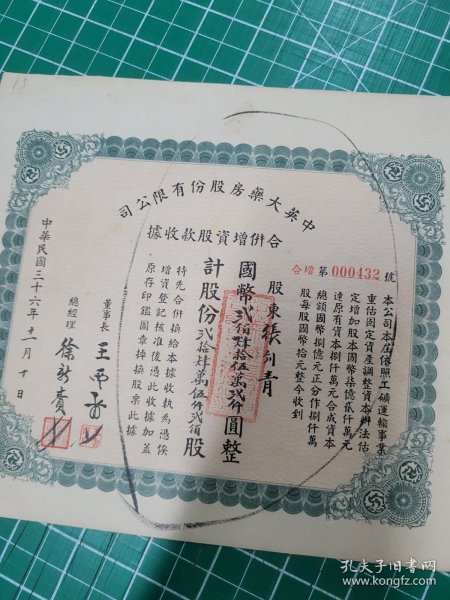 15
中英大藥房股份有限公司
合併增資股款收據
合增 第 000432 號
本公司本屆依照工礦運輸事業
重估固定資產調整資本辦法估
定增加股本國幣柒億貳仟萬元
連原有資本捌仟萬元合成資本
總額國幣捌億元正分作捌仟萬
股每股國幣拾元整今收到
股東 張列青
國幣貳佰肆拾伍萬貳仟圓整
計股份貳拾肆萬伍仟貳佰股
特先合併換給本據收執為憑俟
增資登記核准後憑此收據加蓋
原存印鑑圖章掉換股票此據
董事長 王
總經理 徐
中華民國三十六年十一月十日
孔夫子旧书网
www.kongfz.com